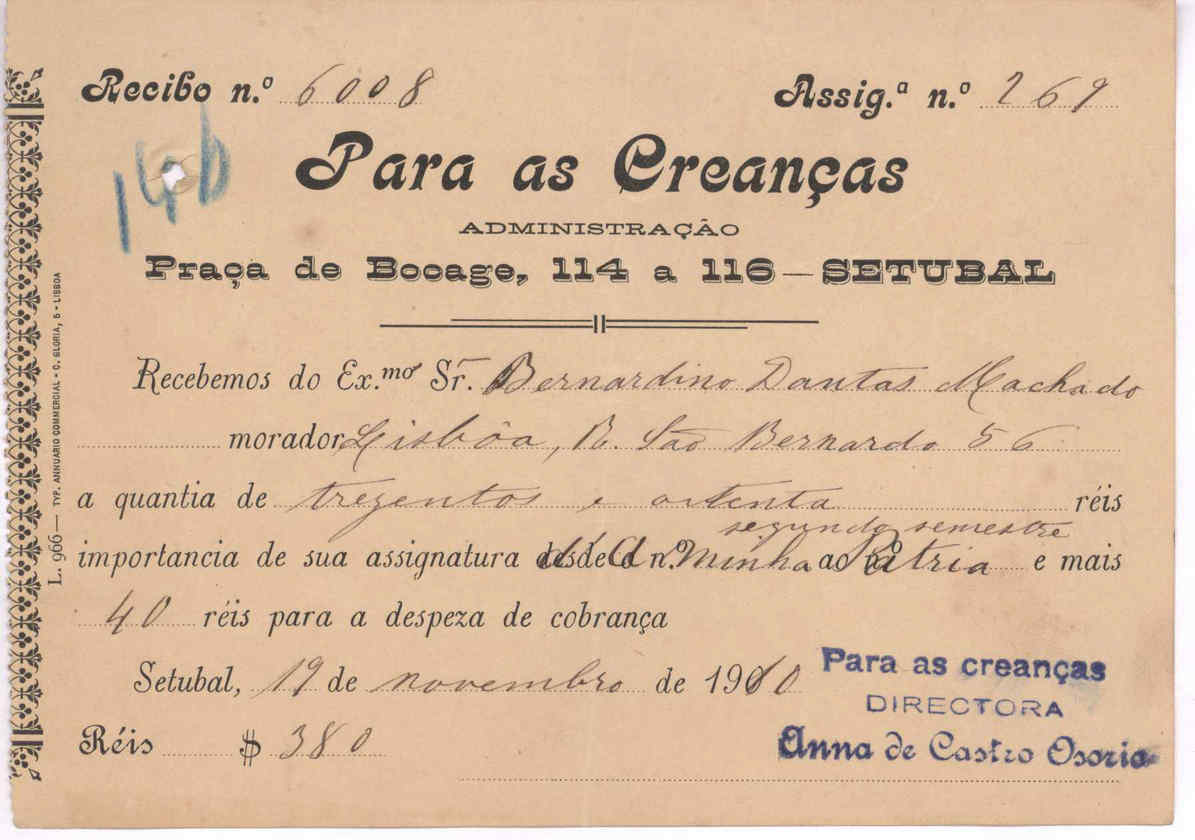 Recibo n.º 6008 Assig.ª n.º 269
146
Para as Creanças
ADMINISTRAÇÃO
Praça de Bocage, 114 a 116 — SETUBAL
Recebemos do Ex.mo Sr. Bernardino Dantas Machado
morador Lisbôa, R. São Bernardo 56
a quantia de trezentos e oitenta réis
segundo semestre
importancia de sua assignatura d'A Minha Patria e mais
40 réis para a despeza de cobrança
Setubal, 19 de novembro de 1910
Réis $ 380
Para as creanças
DIRECTORA
Anna de Castro Osorio
L. 966 — TYP. ANNUARIO COMMERCIAL - C. GLORIA, 5 - LISBOA